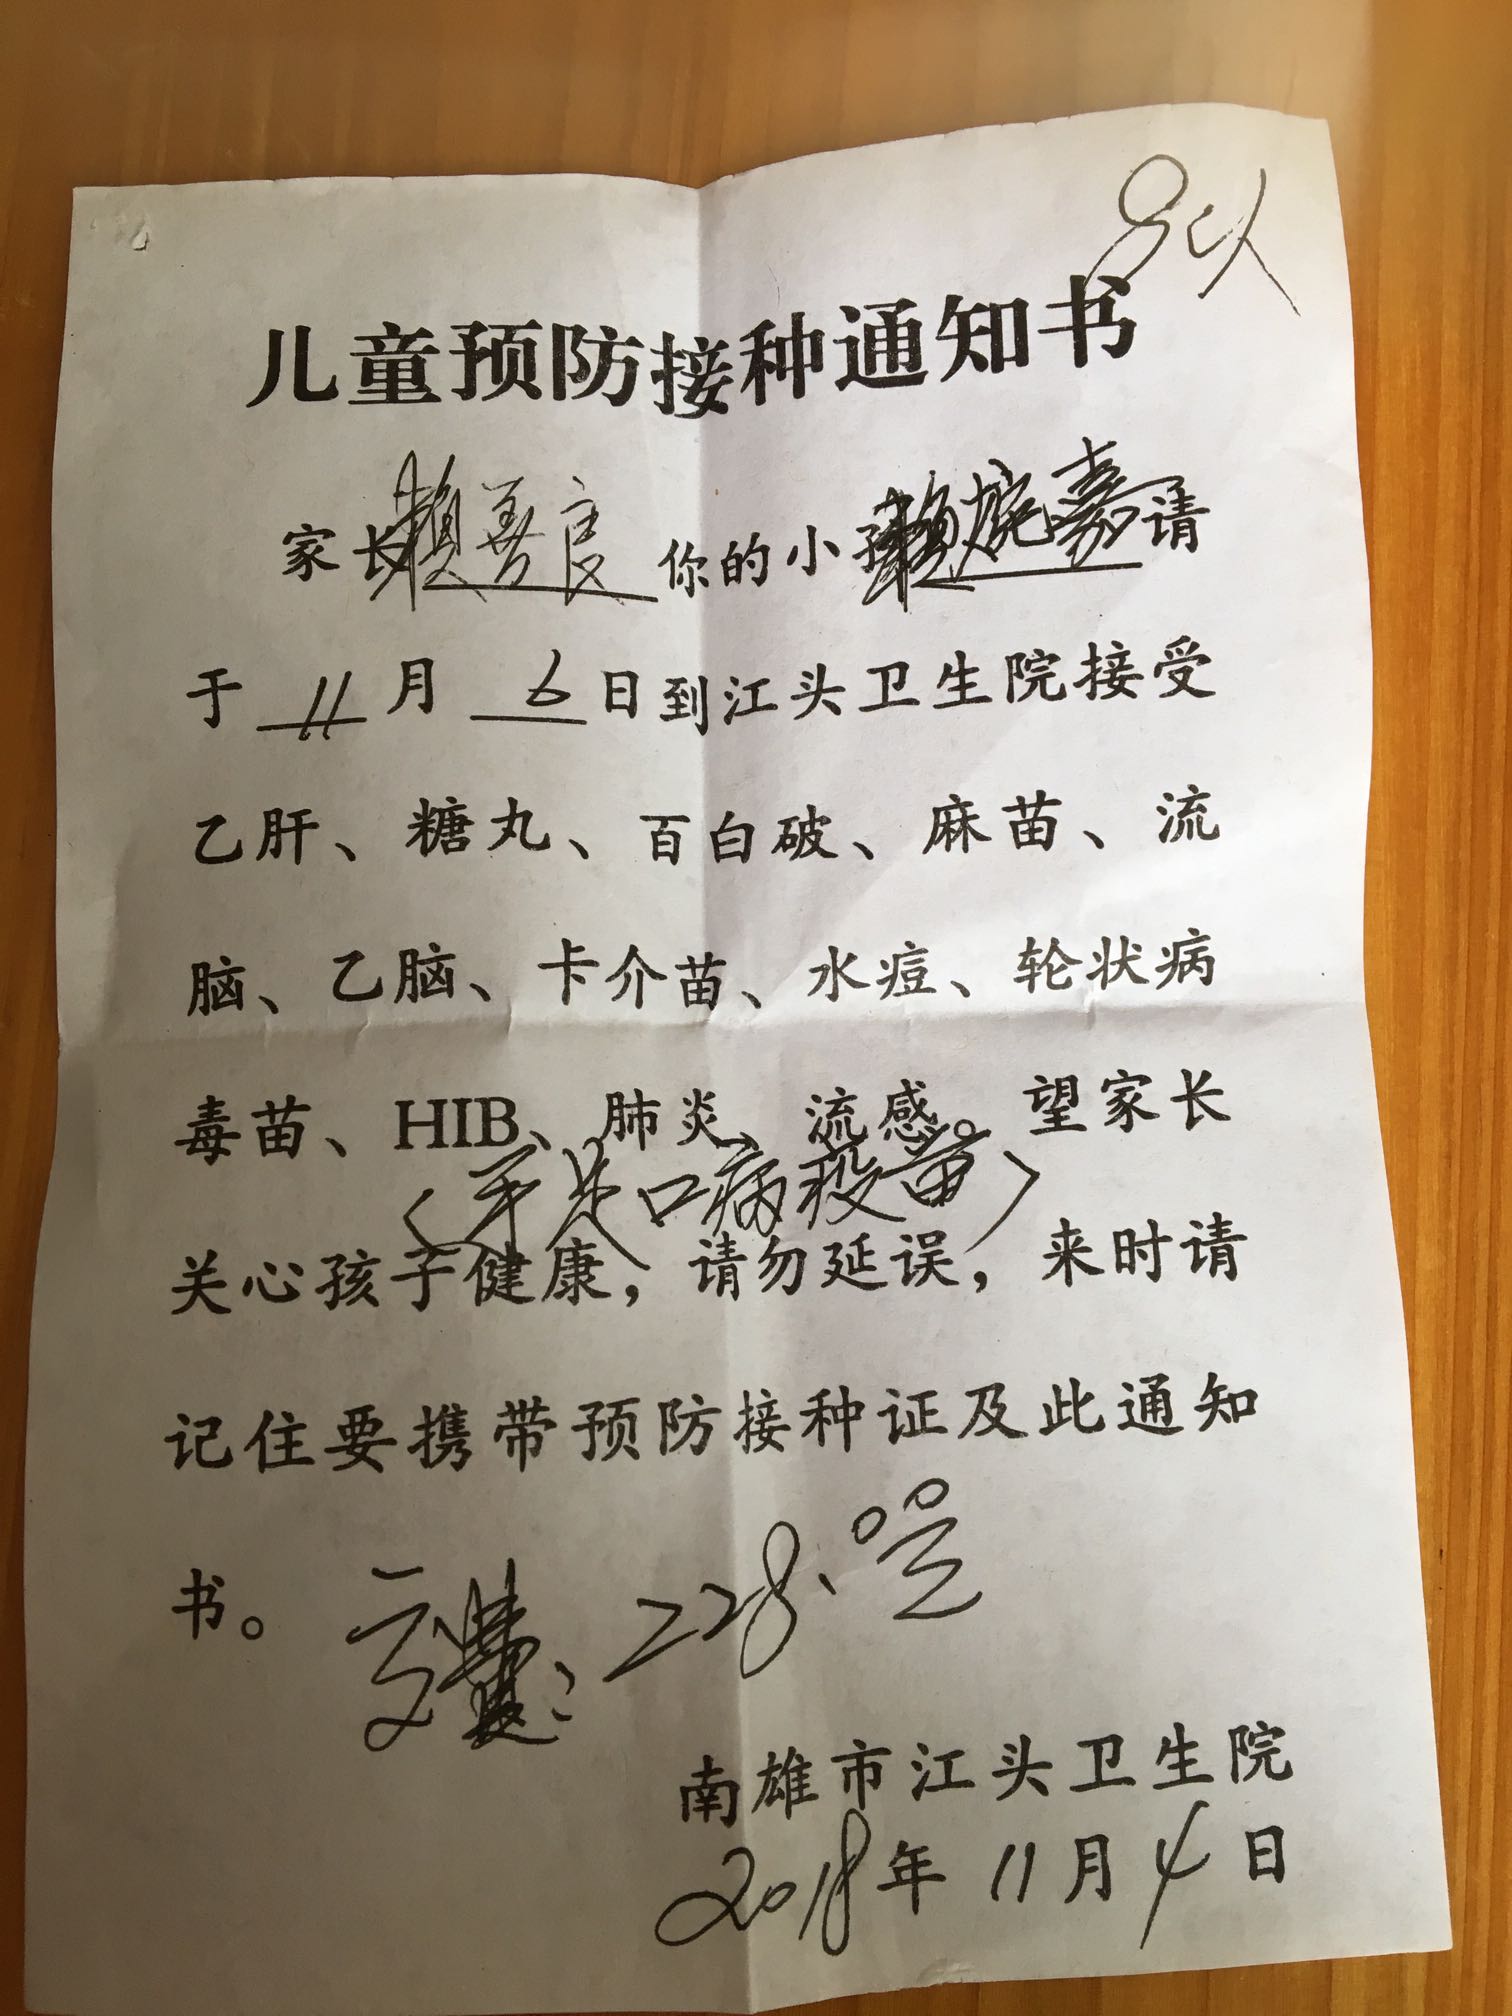 儿童预防接种通知书
家长赖善度你的小孩赖婉嘉请
于 11 月 6 日到江头卫生院接受
乙肝、糖丸、百白破、麻苗、流
脑、乙脑、卡介苗、水痘、轮状病
毒苗、HIB、肺炎、流感。望家长
<手足口病疫苗>
关心孩子健康，请勿延误，来时请
记住要携带预防接种证及此通知
书。 交费：228.00元
南雄市江头卫生院
2018年11月4日